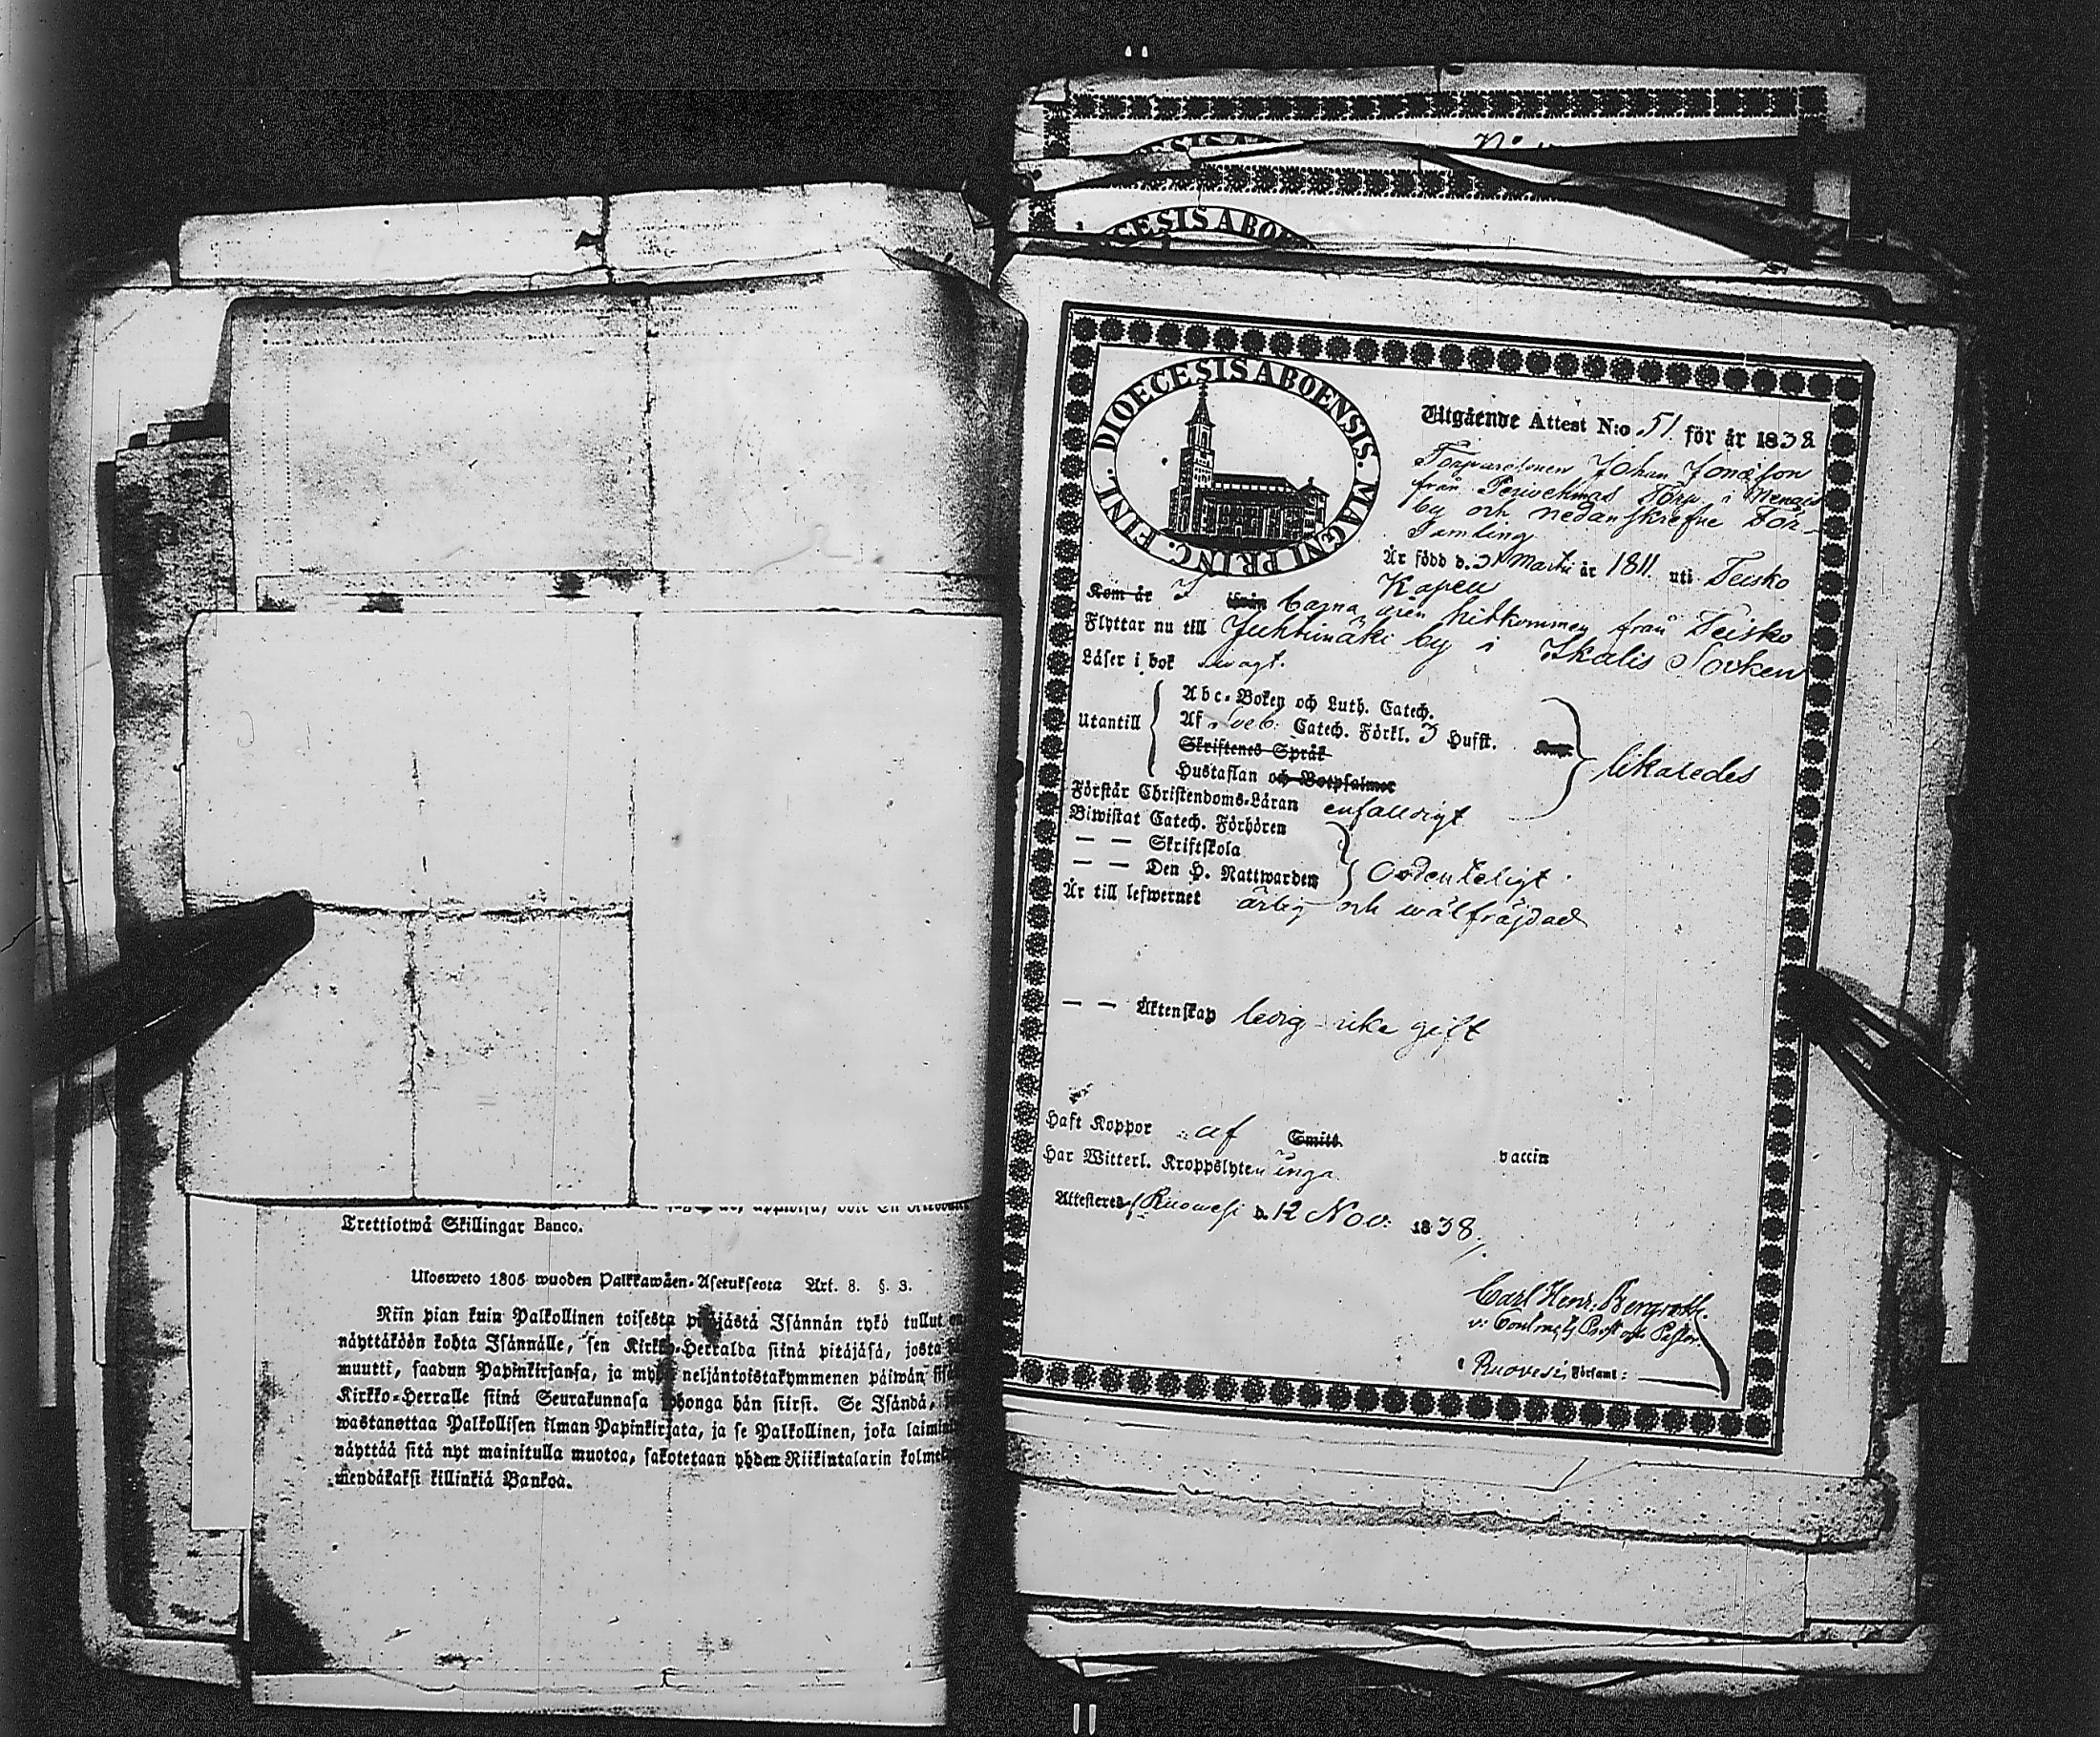 Trettiotwå Skillingar Banco.
Ulosweto 1805 wuoden Palkkawäen-Asetuksesta Art. 8. §. 3.
Niin pian kuin Palkollinen toisesta pitäjästä Isännän tykö tullut
näyttäköön kohta Isännälle, sen Kirkko-Herralda siinä pitäjäsä, josta
muutti, saadun Papinkirjansa, ja myös neljäntoistakymmenen päiwän
Kirkko-Herralle siinä Seurakunnasa johonga hän siirsi. Se Isändä,
wastanottaa Palkollisen ilman Papinkirjata, ja se Palkollinen, joka
näyttää sitä nyt mainitulla muotoa, sakotetaan yhden Riikintalarin
mendäkaksi killinkiä Bankoa.
CESIS ABO
DIOECESIS ABOENSIS. MAGNI PRINC. FINL.
Utgående Attest N:o 51. för år 1838
Johan Jonasson
från Torp i
by och nedanskrefne För-
samling
Är född d. 31 Martii år 1811. uti Teisko
Kapell
Kom år från barna åren hitkommen från Teisko
Flyttar nu till Juhtimäki by i Ikalis Socken
Läser i bok swagt.
Utantill
Abc-Boken och Luth. Catech.
Af Sveb. Catech. Förkl. 3 Hufst.
Skriftenes Språk
Hustaflan och Botpsalmer
likaledes
Förstår Christendoms-Läran enfalldigt
Biwistat Catech. Förhören
— — Skriftskola
— — Den H. Nattwarden
Ordenteligt
Är till lefwernet ärlig och wälfräjdad
— — Äktenskap ledig icke gift
Haft Koppor af Smitt. vaccin
Har Witterl. Kroppslyten inga
Attesteres Ruowesi d. 12 Nov. 1838.
Carl Henr. Bergroth.
v. Contracts Prost och Pastor.
i Ruovesi Församl: